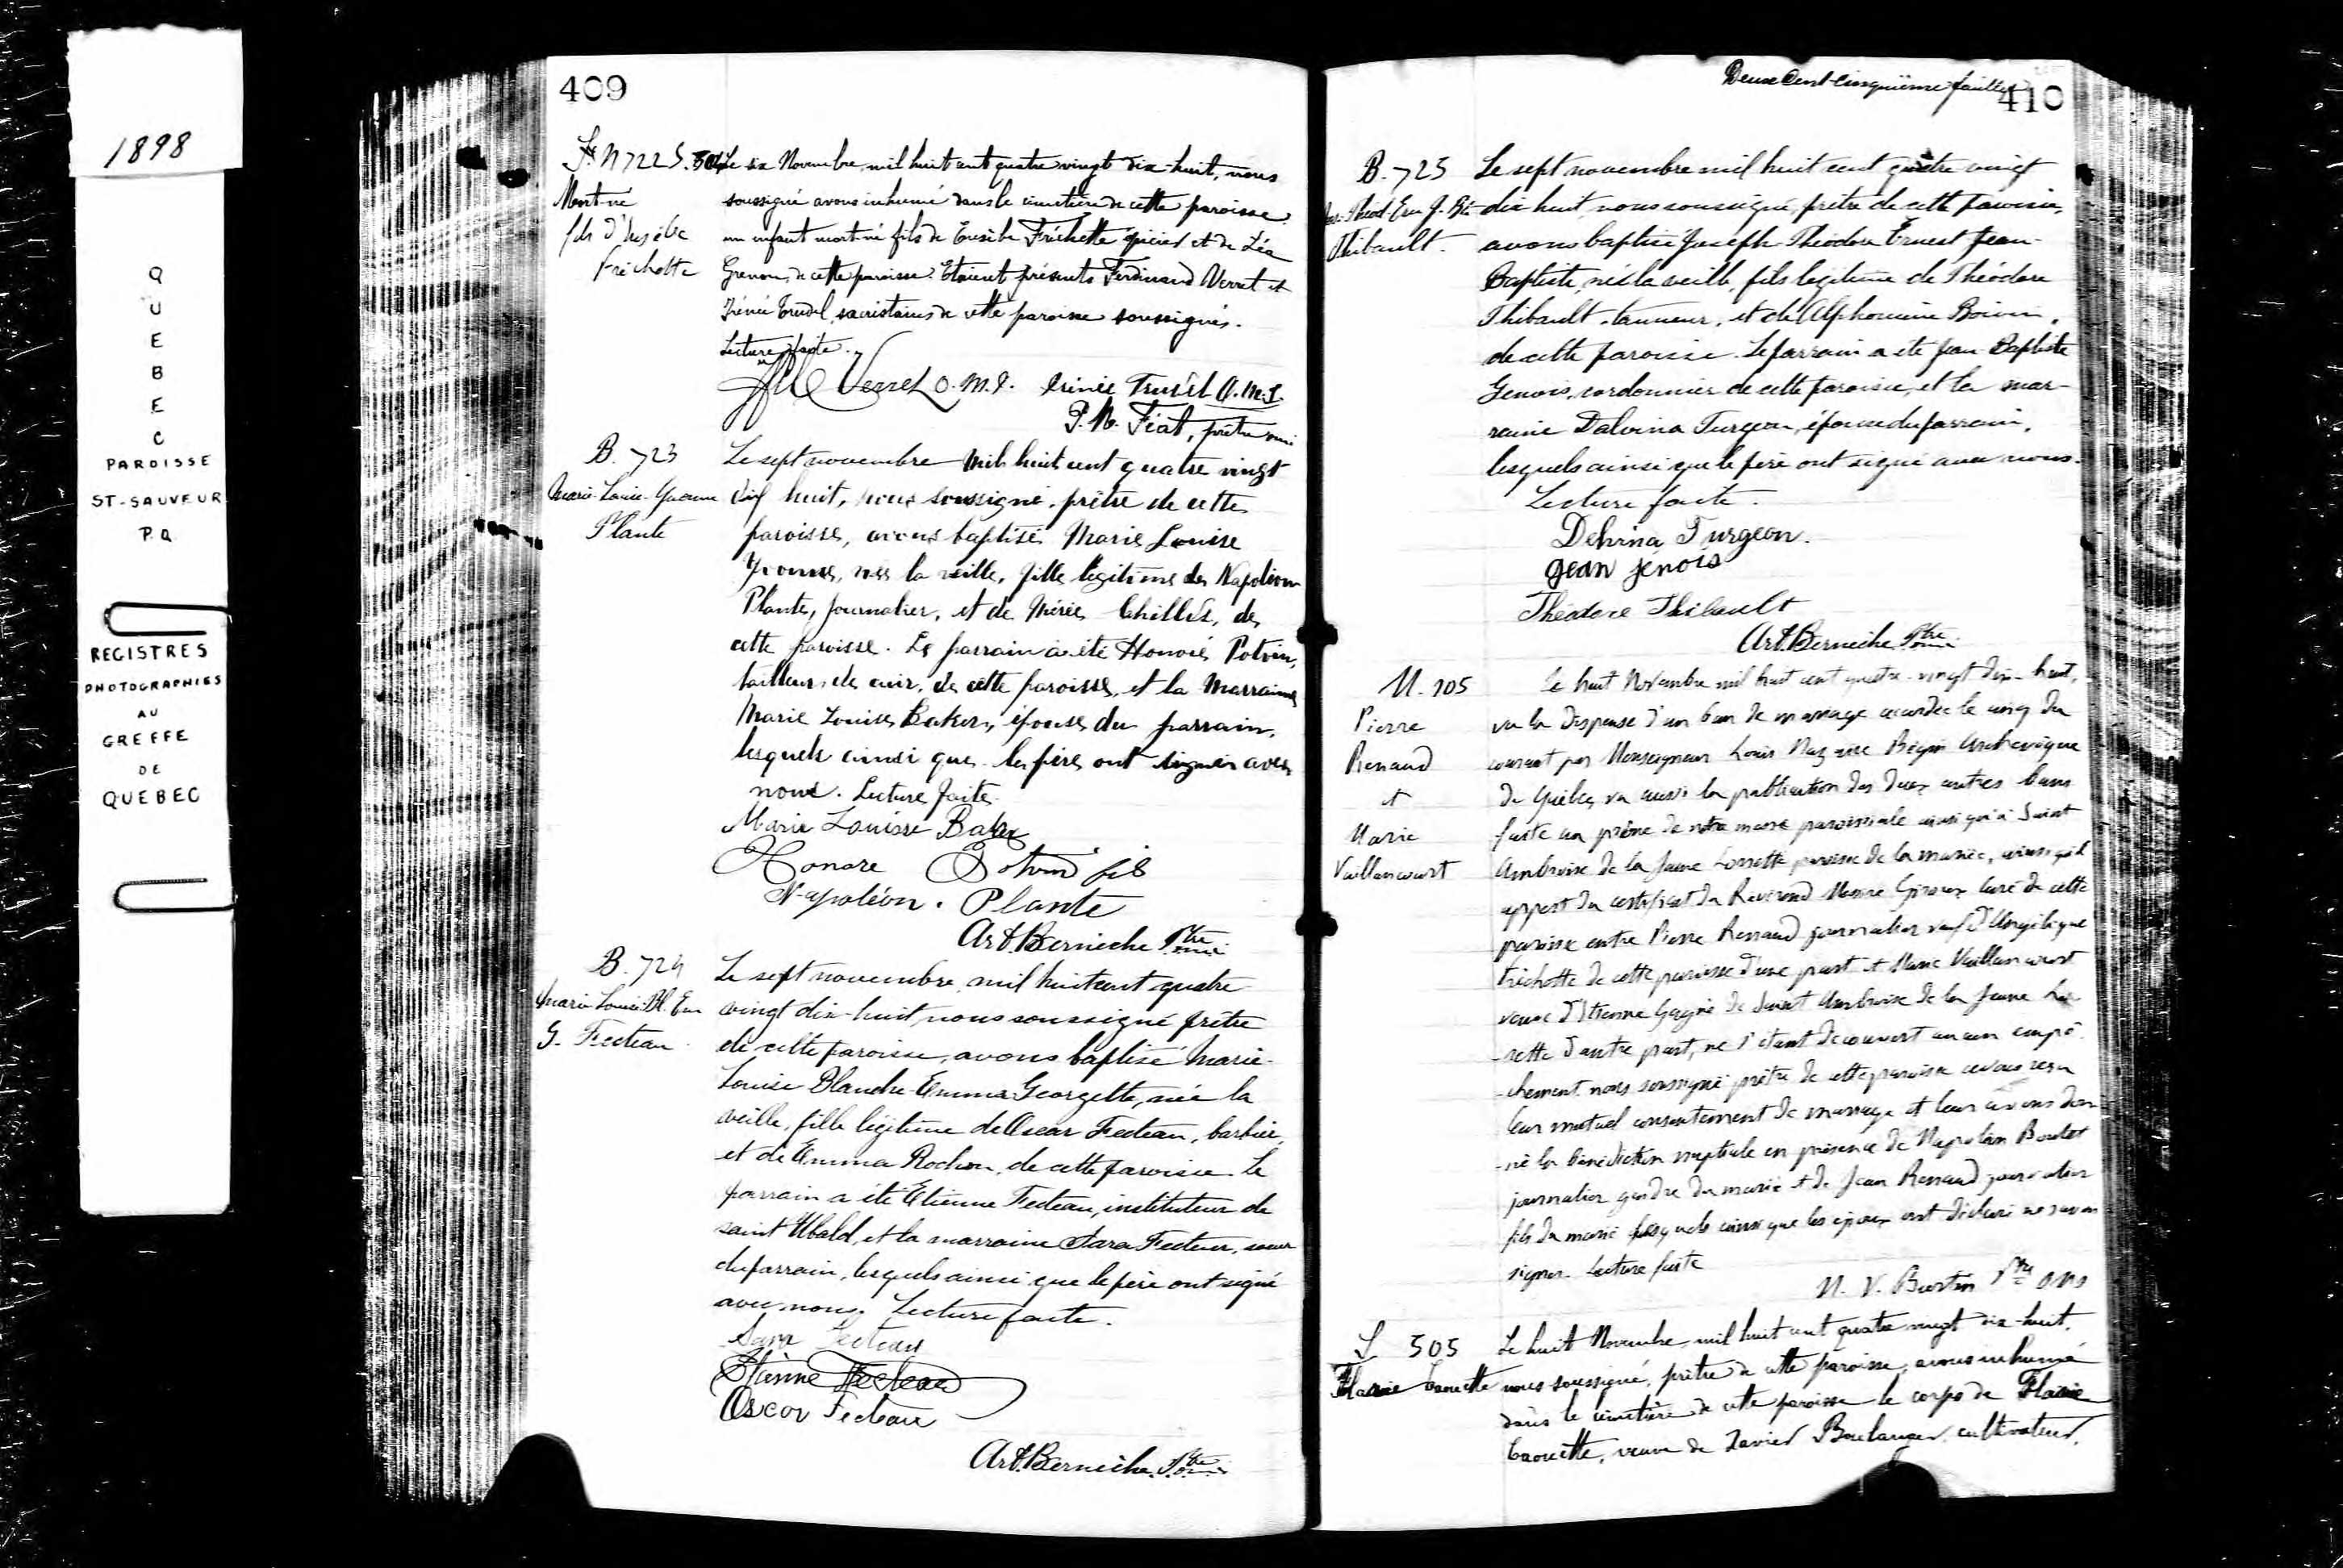 1898
QUEBEC
PAROISSE
ST-SAUVEUR
P.Q
REGISTRES
PHOTOGRAPHIES
AU
GREFFE
DE
QUEBEC
409
S. 504
Mort-né
fils d'Eusèbe
Fréchette
Le six Novembre, mil huit cent quatre vingt dix-huit, nous
soussigné avons inhumé dans le cimetière de cette paroisse
un enfant mort-né fils de Eusèbe Fréchette épicier et de Léa
Grenon, de cette paroisse. Etaient présents Ferdinand Verret et
Irénée Trudel, sacristains de cette paroisse soussignés.
Lecture faite.
Verret O.M.I. Irénée Trudel O.M.I.
P. N. Fiat, prêtre omi
B. 723
Marie-Louise-Yvonne
Plante
Le sept novembre mil huit cent quatre vingt
dix huit, nous soussigné, prêtre de cette
paroisse, avons baptisé Marie Louise
Yvonne, née la veille, fille légitime de Napoléon
Plante, journalier, et de Achille, de
cette paroisse. Le parrain a été Honoré Potvin,
tailleur de cuir, de cette paroisse, et la marraine
Marie Louise Baker, épouse du parrain,
lesquels ainsi que le père ont signé avec
nous. Lecture faite.
Marie Louise Baker
Honore Potvin fils
Napoléon. Plante
Art. Bernèche Ptre omi
B. 724
Marie Louise Bl. Em
G. Fecteau
Le sept novembre, mil huit cent quatre
vingt dix-huit, nous soussigné prêtre
de cette paroisse, avons baptisé Marie-
Louise Blanche-Emma Georgette, née la
veille, fille légitime de Oscar Fecteau, barbier,
et de Emma Rochon, de cette paroisse. Le
parrain a été Etienne Fecteau, instituteur de
saint Ubald, et la marraine Sara Fecteau, soeur
du parrain, lesquels ainsi que le père ont signé
avec nous. Lecture faite.
Sara Fecteau
Etienne Fecteau
Oscar Fecteau
Art. Bernèche, Ptre omi
Deux Cent-Cinquième feuillet
410
B. 725
Jos. Théod. Ern J. Bte
Thibault.
Le sept novembre mil huit cent quatre vingt
dix huit, nous soussigné, prêtre de cette paroisse,
avons baptisé Joseph Théodore Ernest Jean-
Baptiste, né la veille, fils légitime de Théodore
Thibault, tanneur, et de Alphonsine Boivin,
de cette paroisse. Le parrain a été Jean-Baptiste
Genois, cordonnier de cette paroisse, et la mar-
raine Dalvina Turgeon, épouse du parrain,
lesquels ainsi que le père ont signé avec nous.
Lecture faite.
Delvina Turgeon.
Jean Jenois
Théodore Thibault
Art. Bernèche Ptre omi
M. 105
Pierre
Renaud
et
Marie
Vaillancourt
Le huit Novembre mil huit cent quatre-vingt dix-huit,
vu la dispense d'un ban de mariage accordée le cinq du
courant par Monseigneur Louis Nazaire Bégin Archevêque
de Québec, vu aussi la publication des deux autres bans
faite au prône de notre messe paroissiale ainsi qu'à Saint
Ambroise de la Jeune Lorette paroisse de la mariée, ainsi qu'il
appert du certificat du Révérend Messire Giroux curé de cette
paroisse entre Pierre Renaud journalier veuf d'Angélique
Fréchette de cette paroisse d'une part et Marie Vaillancourt
veuve d'Etienne Gagné de Saint Ambroise de la Jeune Lo-
-rette d'autre part, ne s'étant découvert aucun empê
-chement nous soussigné prêtre de cette paroisse avons reçu
leur mutuel consentement de mariage et leur avons don
-né la bénédiction nuptiale en présence de Napoléon Boulet
journalier gendre du marié et de Jean Renaud journalier
fils du marié lesquels ainsi que les époux ont déclaré ne savoir
signer. Lecture faite
Ptre OMI
S 505
Flavie Caouette
Le huit Novembre mil huit cent quatre vingt dix-huit,
nous soussigné, prêtre de cette paroisse, avons inhumé
dans le cimetière de cette paroisse le corps de Flavie
Caouette, veuve de Xavier Boulanger, cultivateur,